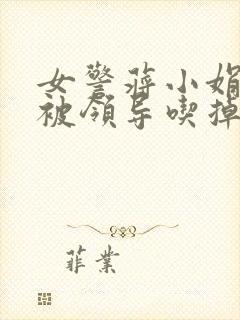 女警蒋小娟
被领导喫掉
菲業